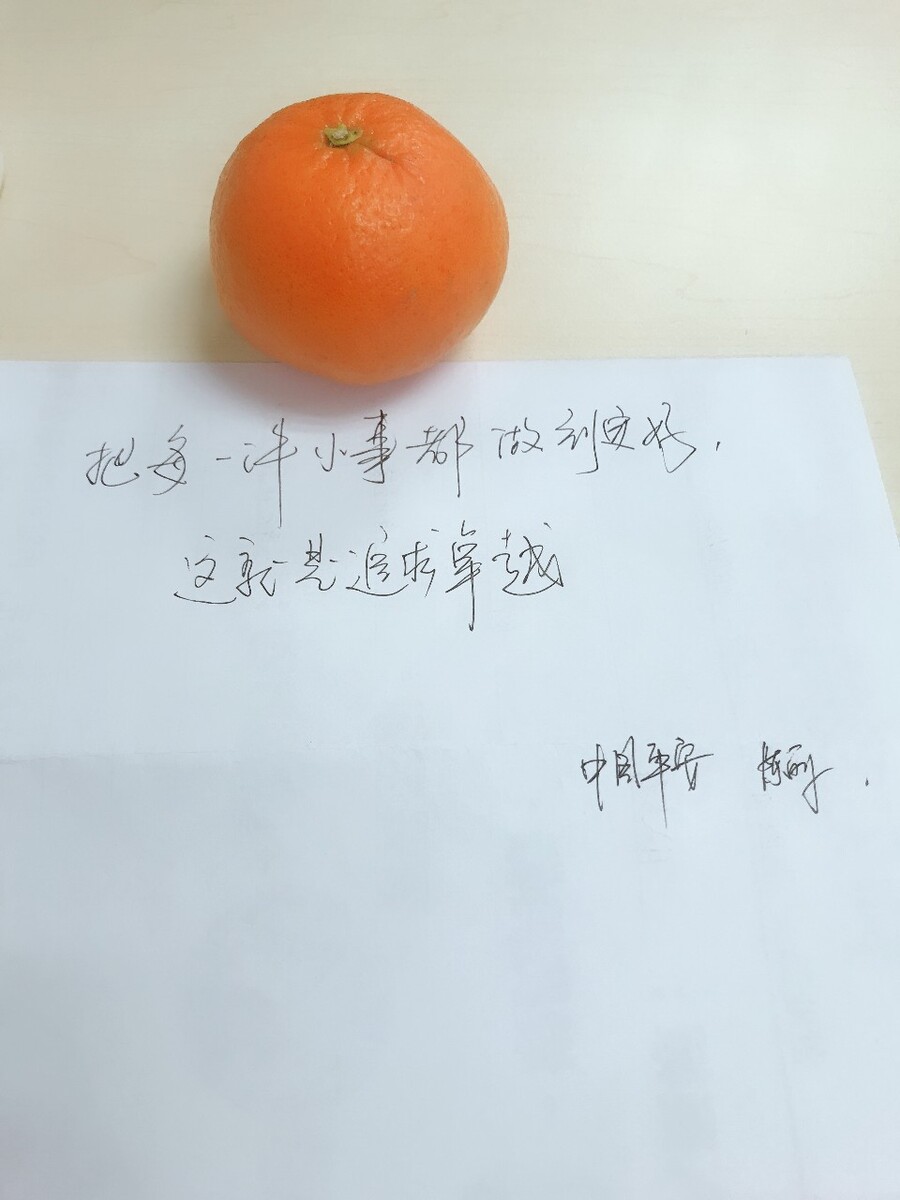 把每一件小事都做到更好，
这就是追求卓越
中国平安 陈丽.